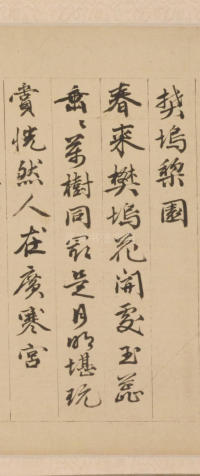 樊塢梨園
春來樊塢花開處玉蕊
垂垂萬樹同最是月明堪玩
賞恍然人在廣寒宮